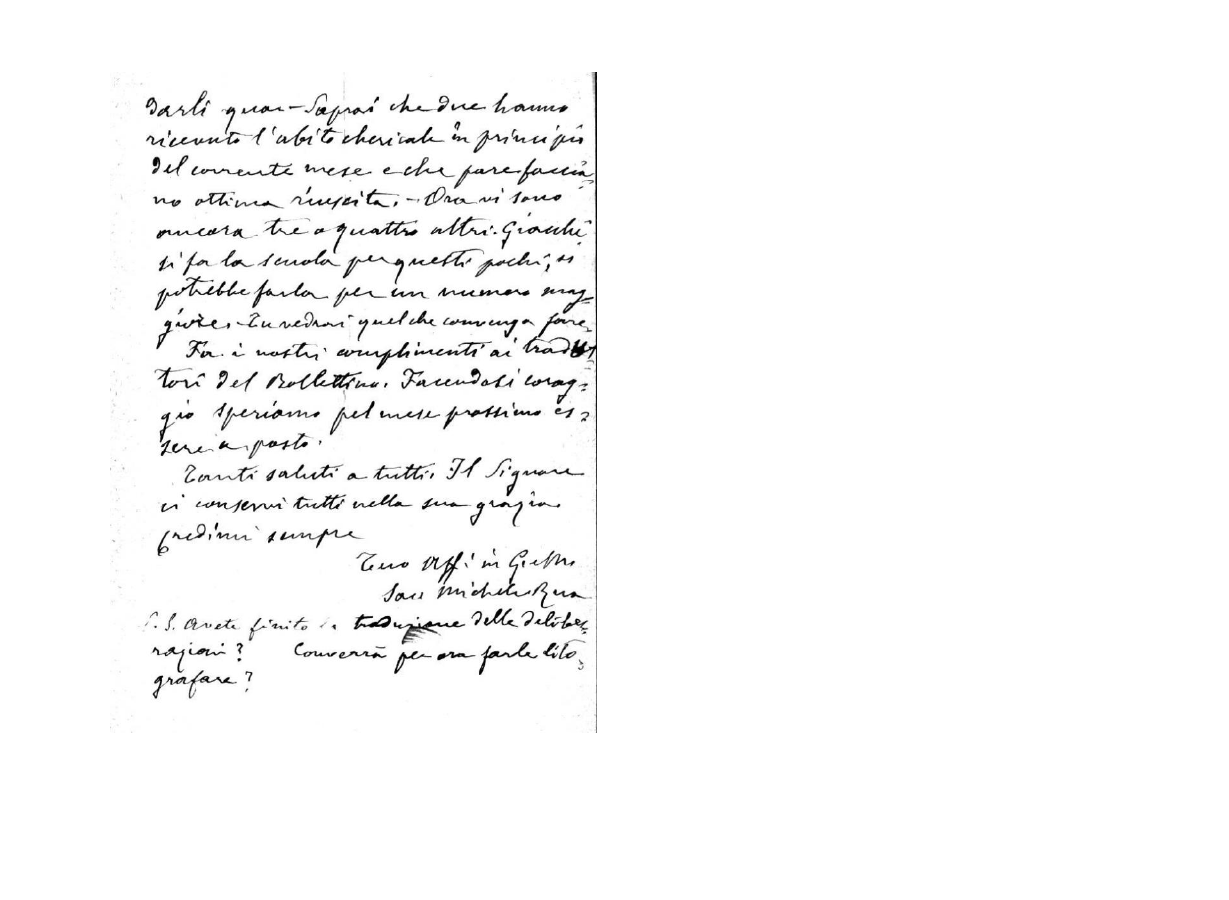 darli qua. – Saprai che due hanno
ricevuto l'abito chericale in principio
del corrente mese e che pare faccia-
no ottima riuscita. – Ora vi sono
ancora tre o quattro altri. Giacchè
si fa la scuola per questi pochi, si
potrebbe farla per un numero mag-
giore. – Tu vedrai quel che convenga fare.
Fa i nostri complimenti ai tradut-
tori del Bollettino. Facendosi corag-
gio speriamo pel mese prossimo es-
sere a posto.
Tanti saluti a tutti. Il Signore
ci conservi tutti nella sua grazia
Credimi sempre
Tuo Aff. in G.
Sac. Michele Rua
P.S. Avete finito la traduzione delle delibe-
razioni? Converrà per ora farle lito-
grafare?